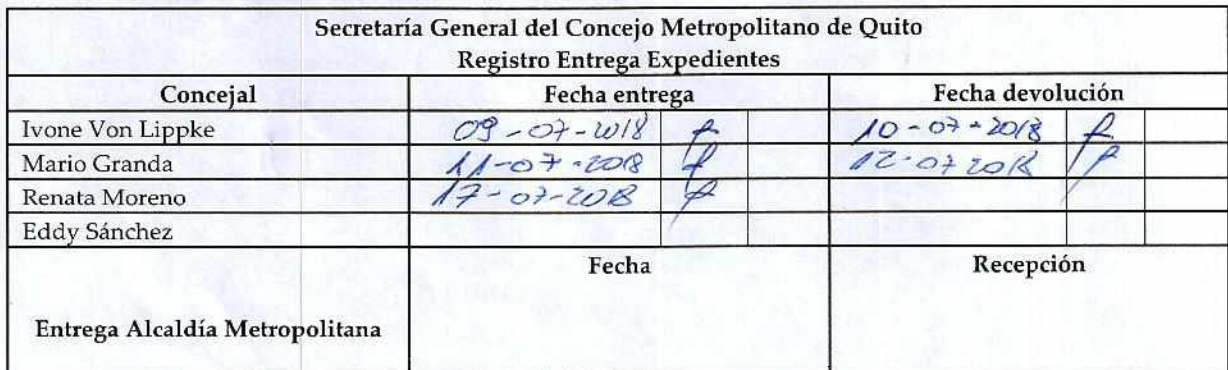 Secretaría General del Concejo Metropolitano de Quito
Registro Entrega Expedientes
Concejal Fecha entrega Fecha devolución
Ivone Von Lippke 09-07-2018 10-07-2018
Mario Granda 11-07-2018 12-07 2018
Renata Moreno 17-07-2018
Eddy Sánchez
Fecha Recepción
Entrega Alcaldía Metropolitana